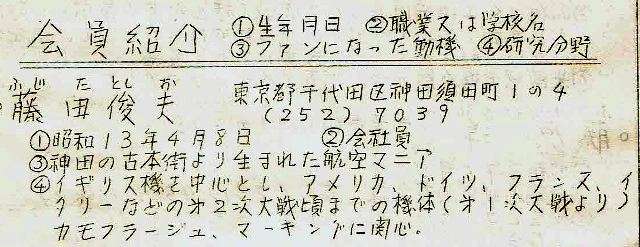 会員紹介 ①生年月日 ②職業又は学校名
③ファンになった動機 ④研究分野
ふじ た とし お
藤田俊夫 東京都千代田区神田須田町1の4
(252) 7039
①昭和13年4月8日 ②会社員
③神田の古本街より生まれた航空マニア
④イギリス機を中心とし、アメリカ、ドイツ、フランス、イ
タリーなどの才2次大戦頃までの機体(才1次大戦より)
カモフラージュ、マーキングに関心。